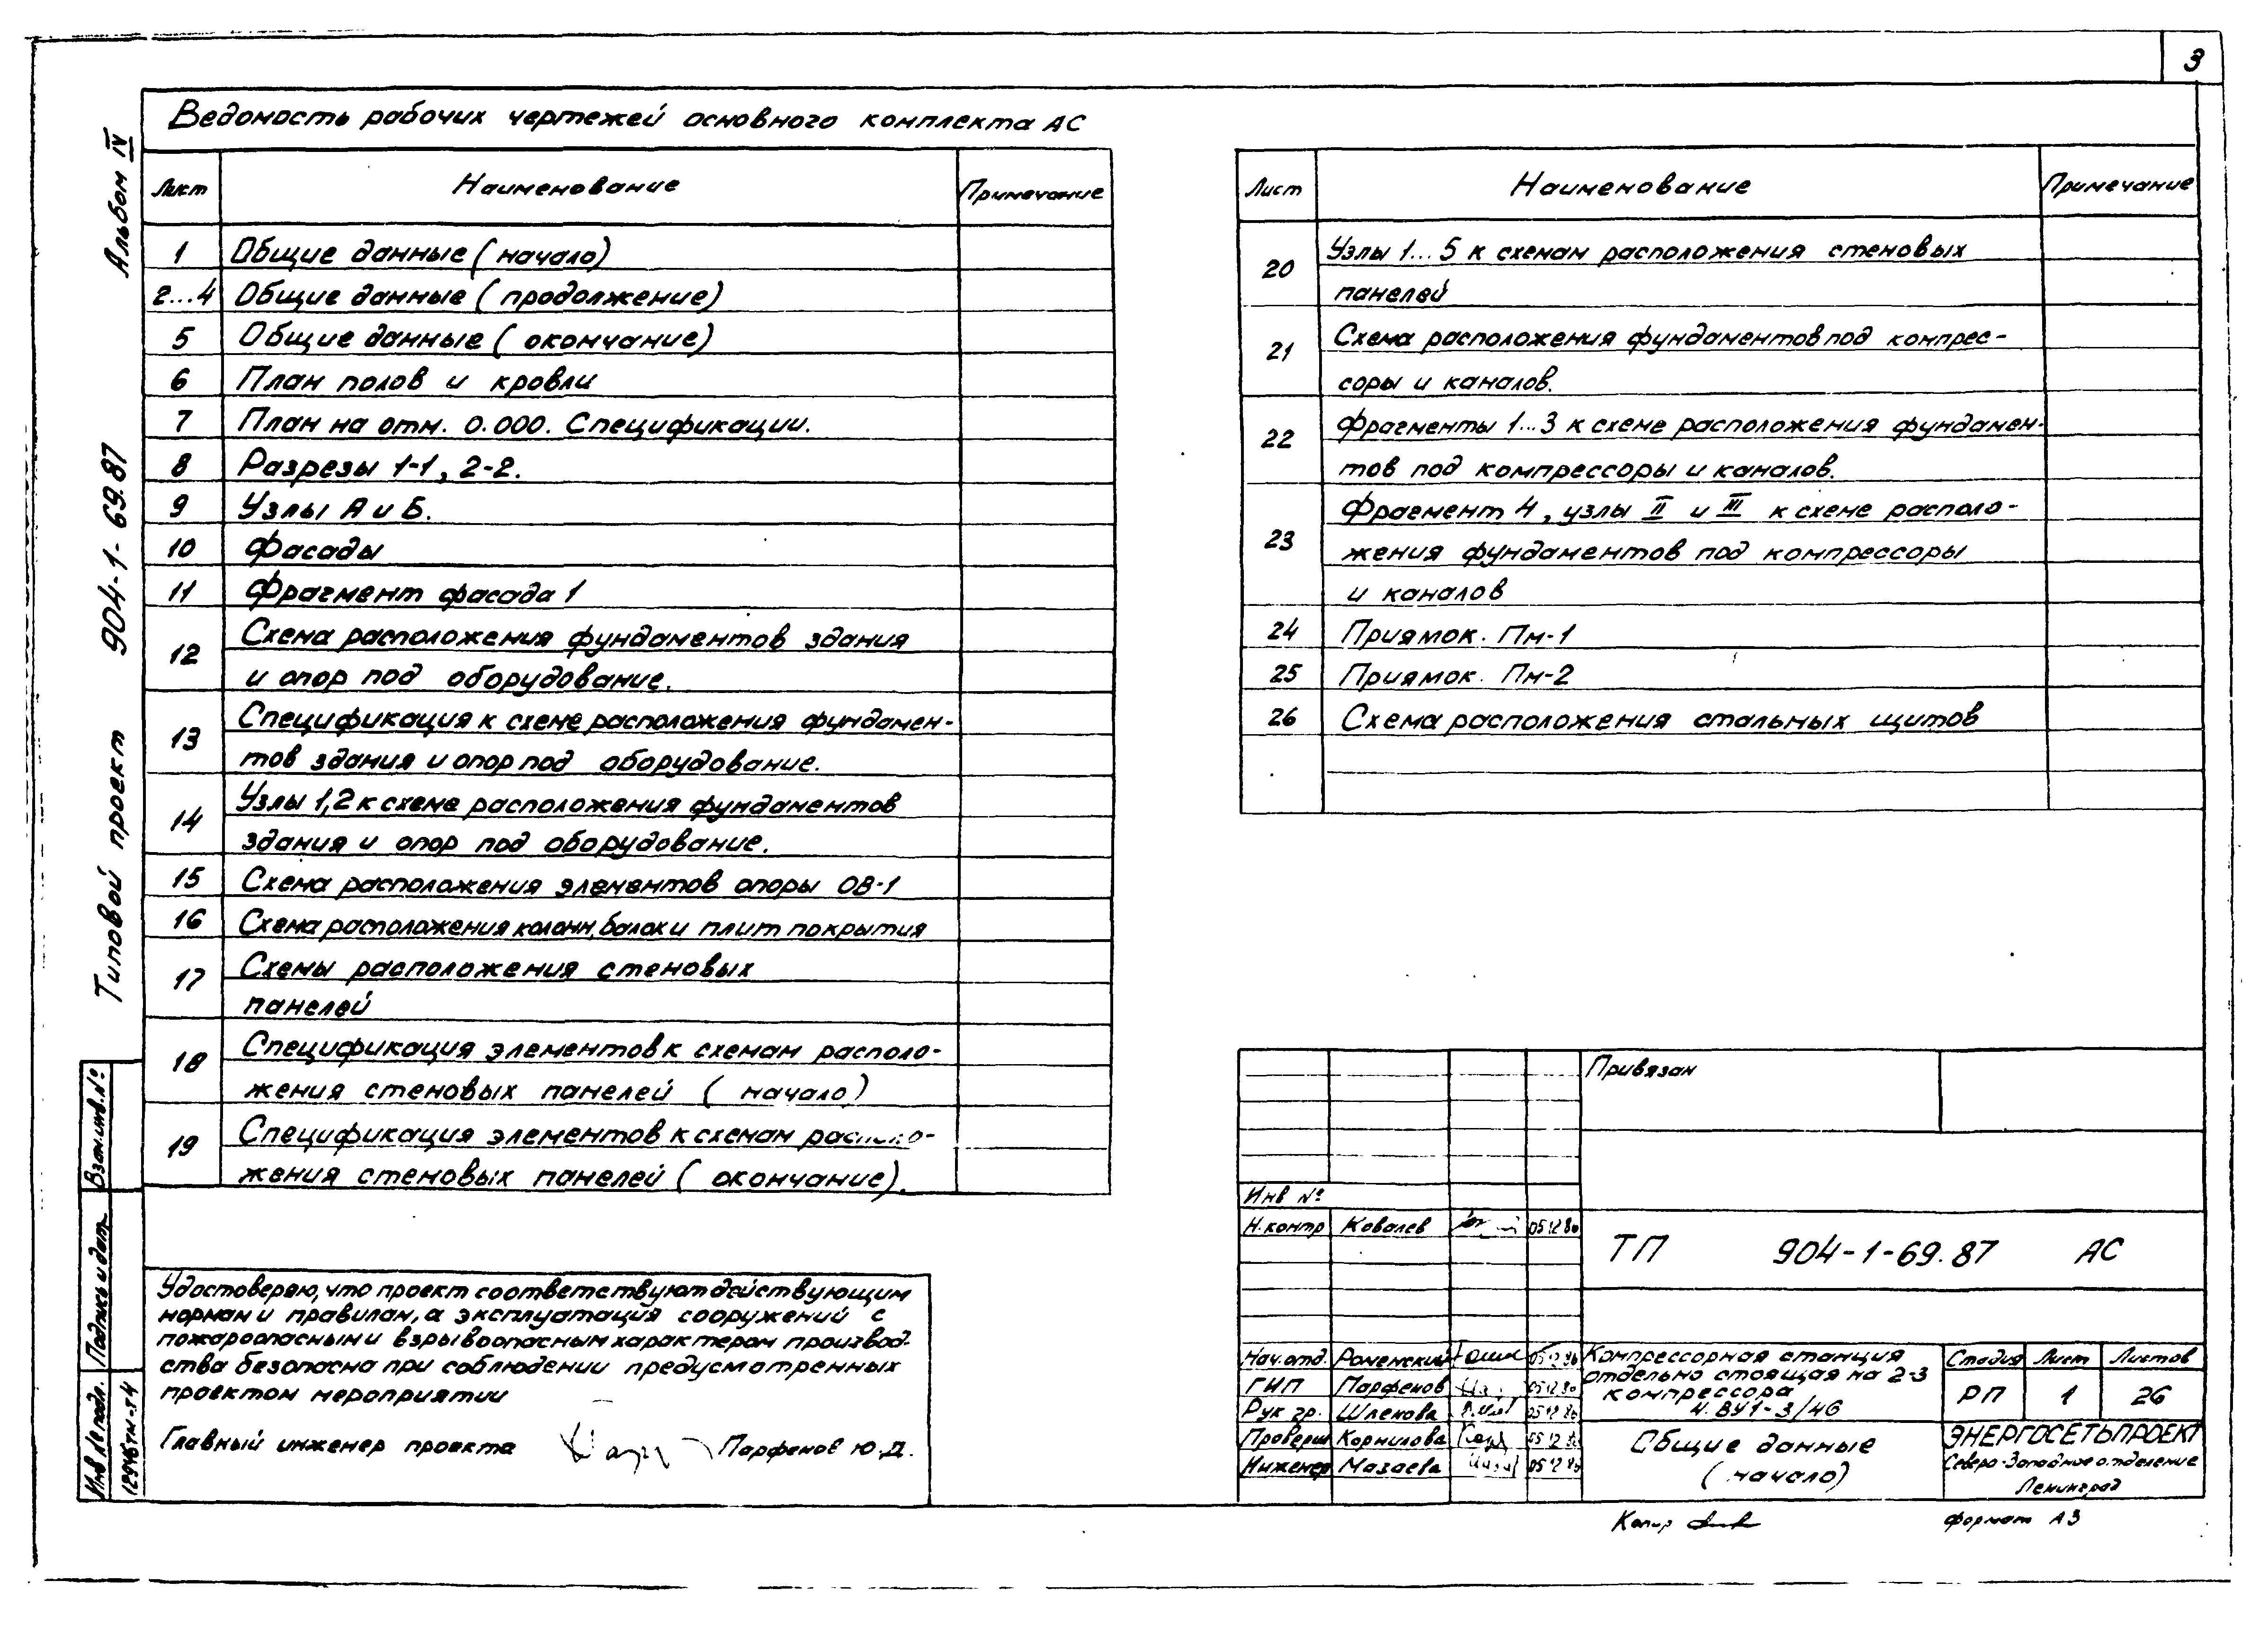 3
Ведомость рабочих чертежей основного комплекта АС
Лист Наименование Примечание
1 Общие данные (начало)
2...4 Общие данные (продолжение)
5 Общие данные (окончание)
6 План полов и кровли
7 План на отм. 0.000. Спецификации.
8 Разрезы 1-1, 2-2.
9 Узлы А и Б.
10 Фасады
11 Фрагмент фасада 1
12 Схема расположения фундаментов здания
и опор под оборудование.
13 Спецификация к схеме расположения фундамен-
тов здания и опор под оборудование.
14 Узлы 1,2 к схеме расположения фундаментов
здания и опор под оборудование.
15 Схема расположения элементов опоры ОВ-1
16 Схема расположения колонн, балок и плит покрытия
17 Схемы расположения стеновых
панелей
18 Спецификация элементов к схемам располо-
жения стеновых панелей (начало)
19 Спецификация элементов к схемам располо-
жения стеновых панелей (окончание).
Лист Наименование Примечание
20 Узлы 1...5 к схемам расположения стеновых
панелей
21 Схема расположения фундаментов под компрес-
соры и каналов.
22 Фрагменты 1...3 к схеме расположения фундамен-
тов под компрессоры и каналов.
23 Фрагмент 4, узлы II и III к схеме располо-
жения фундаментов под компрессоры
и каналов
24 Приямок. Пм-1
25 Приямок. Пм-2
26 Схема расположения стальных щитов
Типовой проект 904-1-69.87 Альбом IV
Взам.инв.№
Подпись и дата
Инв.№ подл.
12946тм-т4
Удостоверяю, что проект соответствует действующим
нормам и правилам, а эксплуатация сооружений с
пожароопасным и взрывоопасным характером производ-
ства безопасна при соблюдении предусмотренных
проектом мероприятии
Главный инженер проекта Парфенов Ю.Д.
Привязан
Инв №
Н.контр Ковалев 05.12.86
ТП 904-1-69.87 АС
Нач.отд. Роменский 05.12.86
ГИП Парфенов 05.12.86
Рук гр. Шленова 05.12.86
Проверил Корнилова 05.12.86
Инженер Мазаева 05.12.86
Компрессорная станция
отдельно стоящая на 2-3
компрессора
4.ВУ1-3/46
Стадия Лист Листов
РП 1 26
Общие данные
(начало)
ЭНЕРГОСЕТЬПРОЕКТ
Северо-Западное отделение
Ленинград
Копир
Формат А3